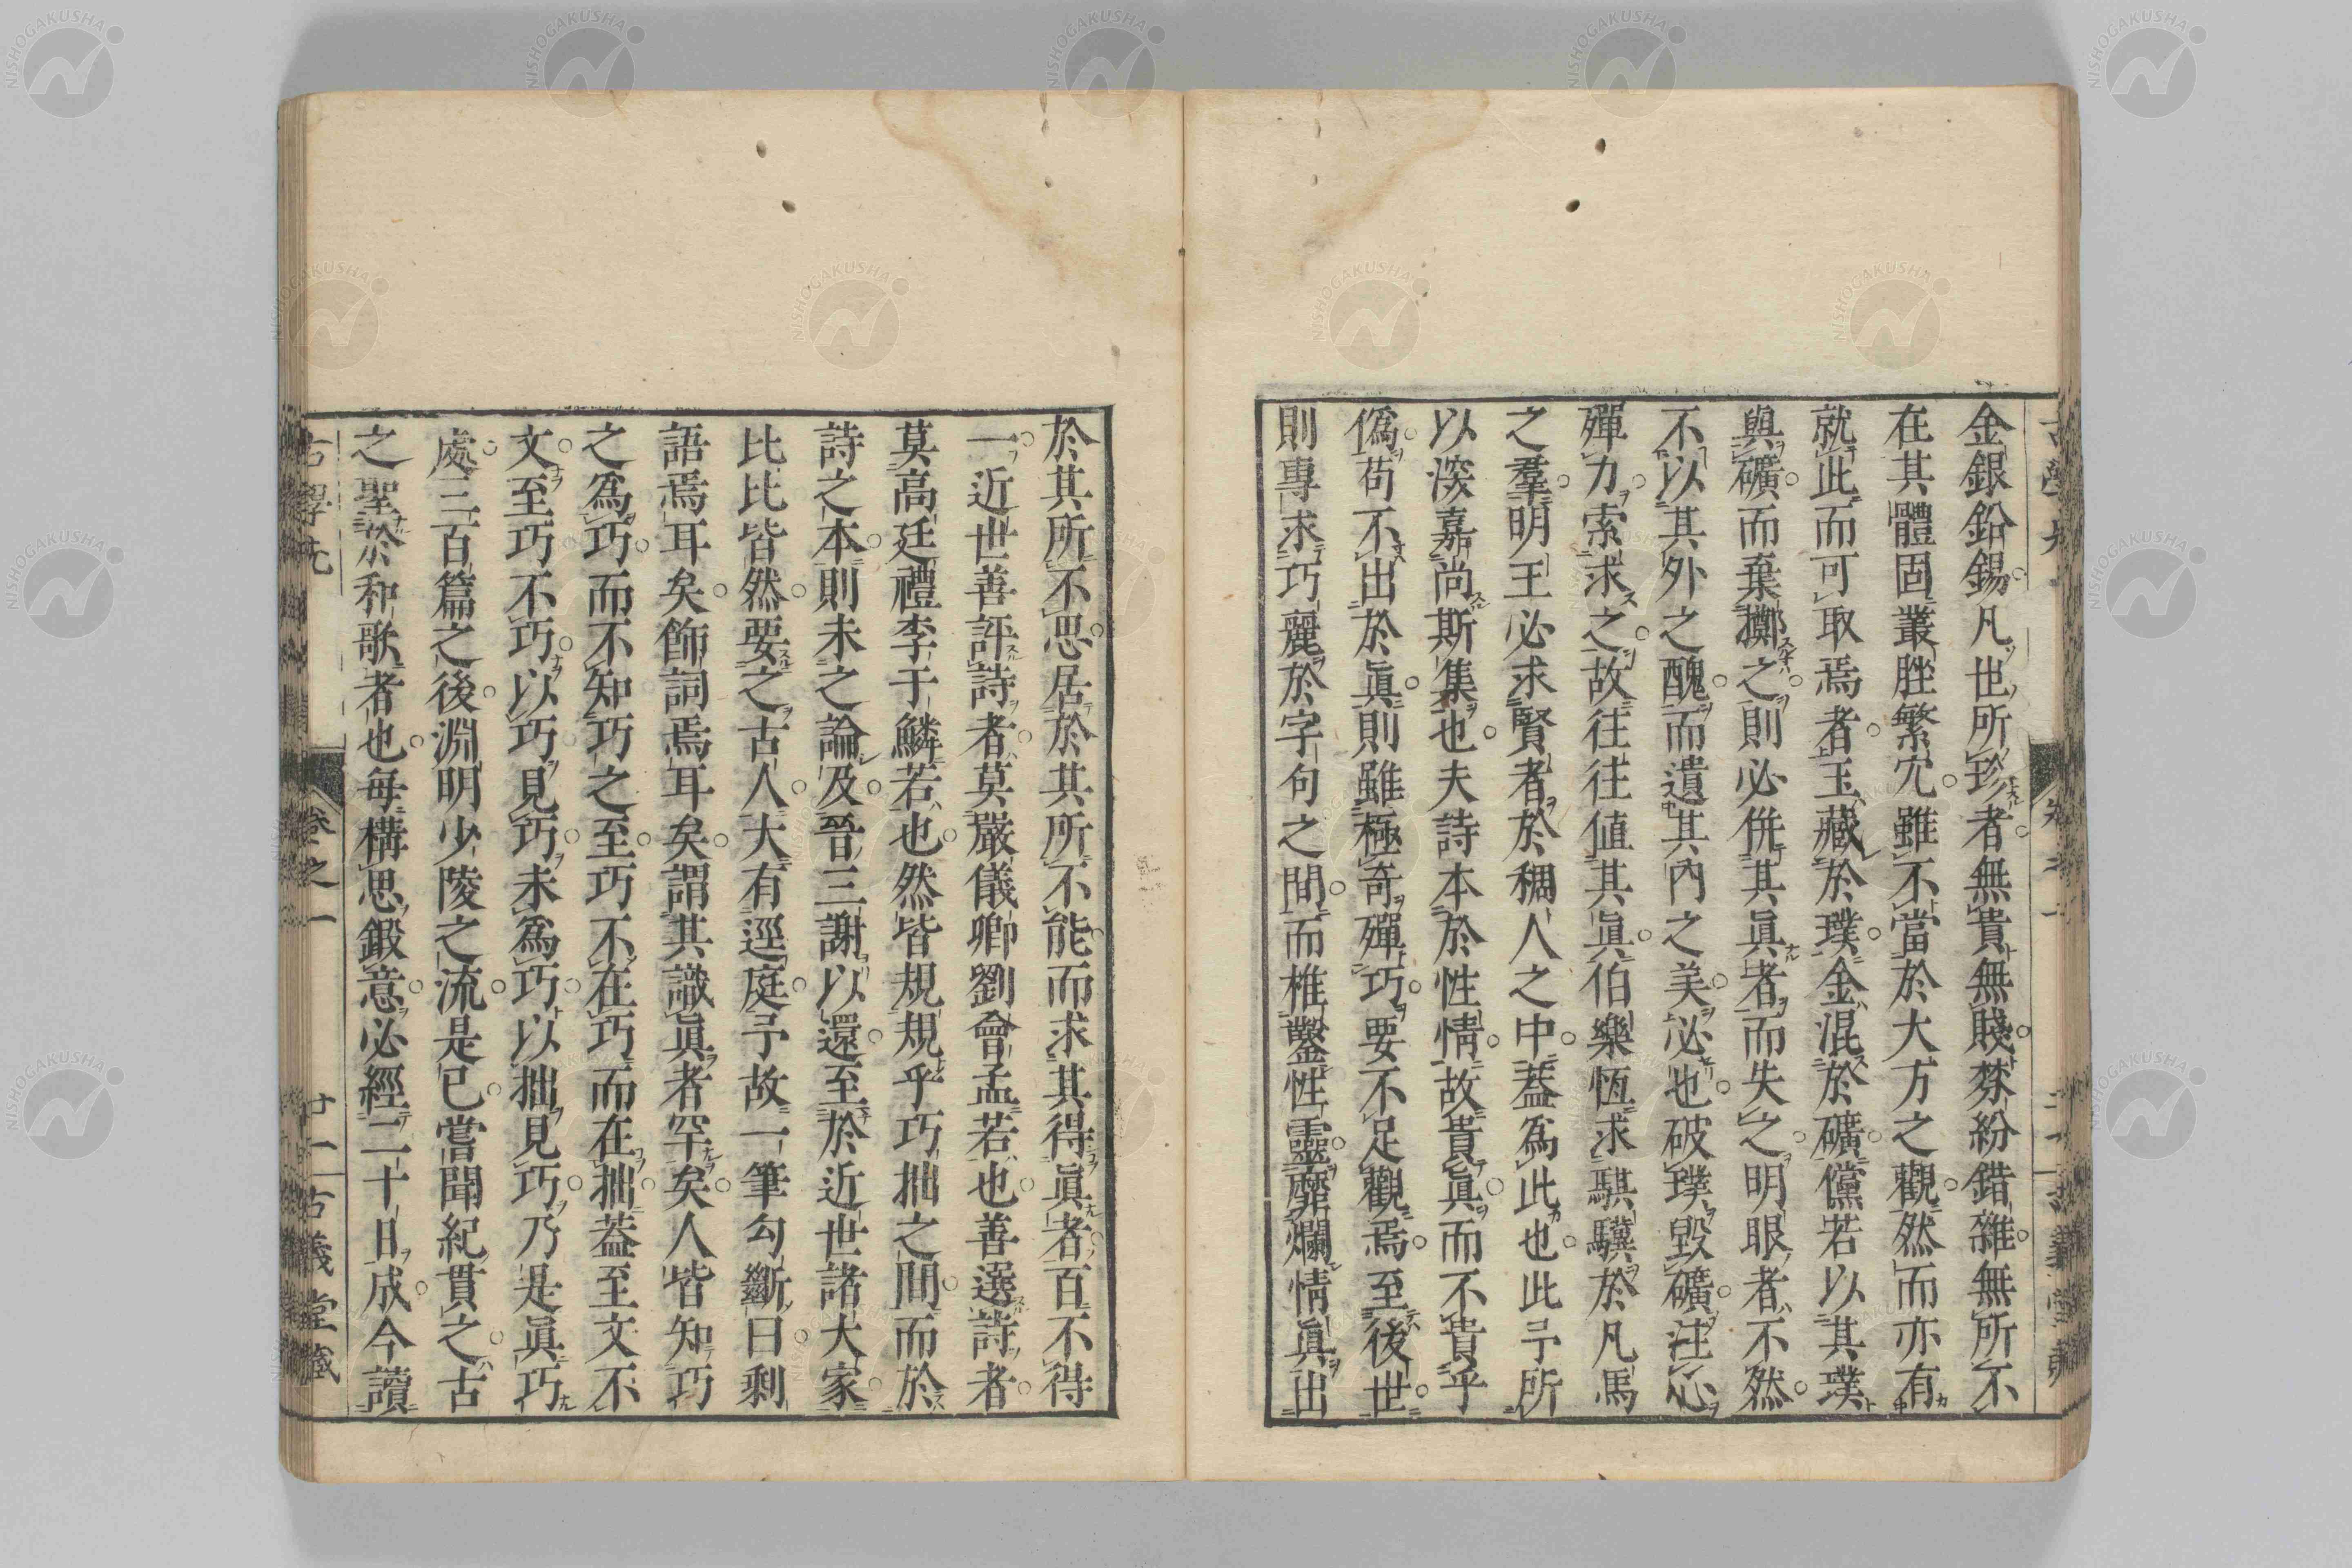 金銀鉛錫凡世所珍者無貴無賤棼紛錯雜無所不
在其體固叢脞繁冗雖不當於大方之觀然而亦有
就此而可取焉者玉藏於璞金混於礦儻若以其璞
與礦而棄擲之則必倂其眞者而失之明眼者不然
不以其外之醜而遺其內之美必也破璞毀礦注心
殫力索求之故往往値其眞伯樂恆求騏驥於凡馬
之羣明王必求賢者於稠人之中葢爲此也此予所
以深嘉尚斯集也夫詩本於性情故貴眞而不貴乎
僞苟不出於眞則雖極奇殫巧要不足觀焉至後世
則專求巧麗於字句之間而椎鑿性靈靡爛情眞出
於其所不思居於其所不能而求其得眞者百不得
一近世善評詩者莫嚴儀卿劉會孟若也善選詩者
莫高廷禮李于鱗若也然皆規規乎巧拙之間而於
詩之本則未之論及晉三謝以還至於近世諸大家
比比皆然要之古人大有逕庭予故一筆勾斷曰剩
語焉耳矣飾詞焉耳矣謂其識眞者罕矣人皆知巧
之爲巧而不知巧之至巧不在巧而在拙葢至文不
文至巧不巧以巧見巧未爲巧以拙見巧乃是眞巧
處三百篇之後淵明少陵之流是已嘗聞紀貫之古
之聖於和歌者也每構思鍛意必經二十日成今讀
古學先 卷之一 廿一 古義堂藏
NISHOGAKUSHA